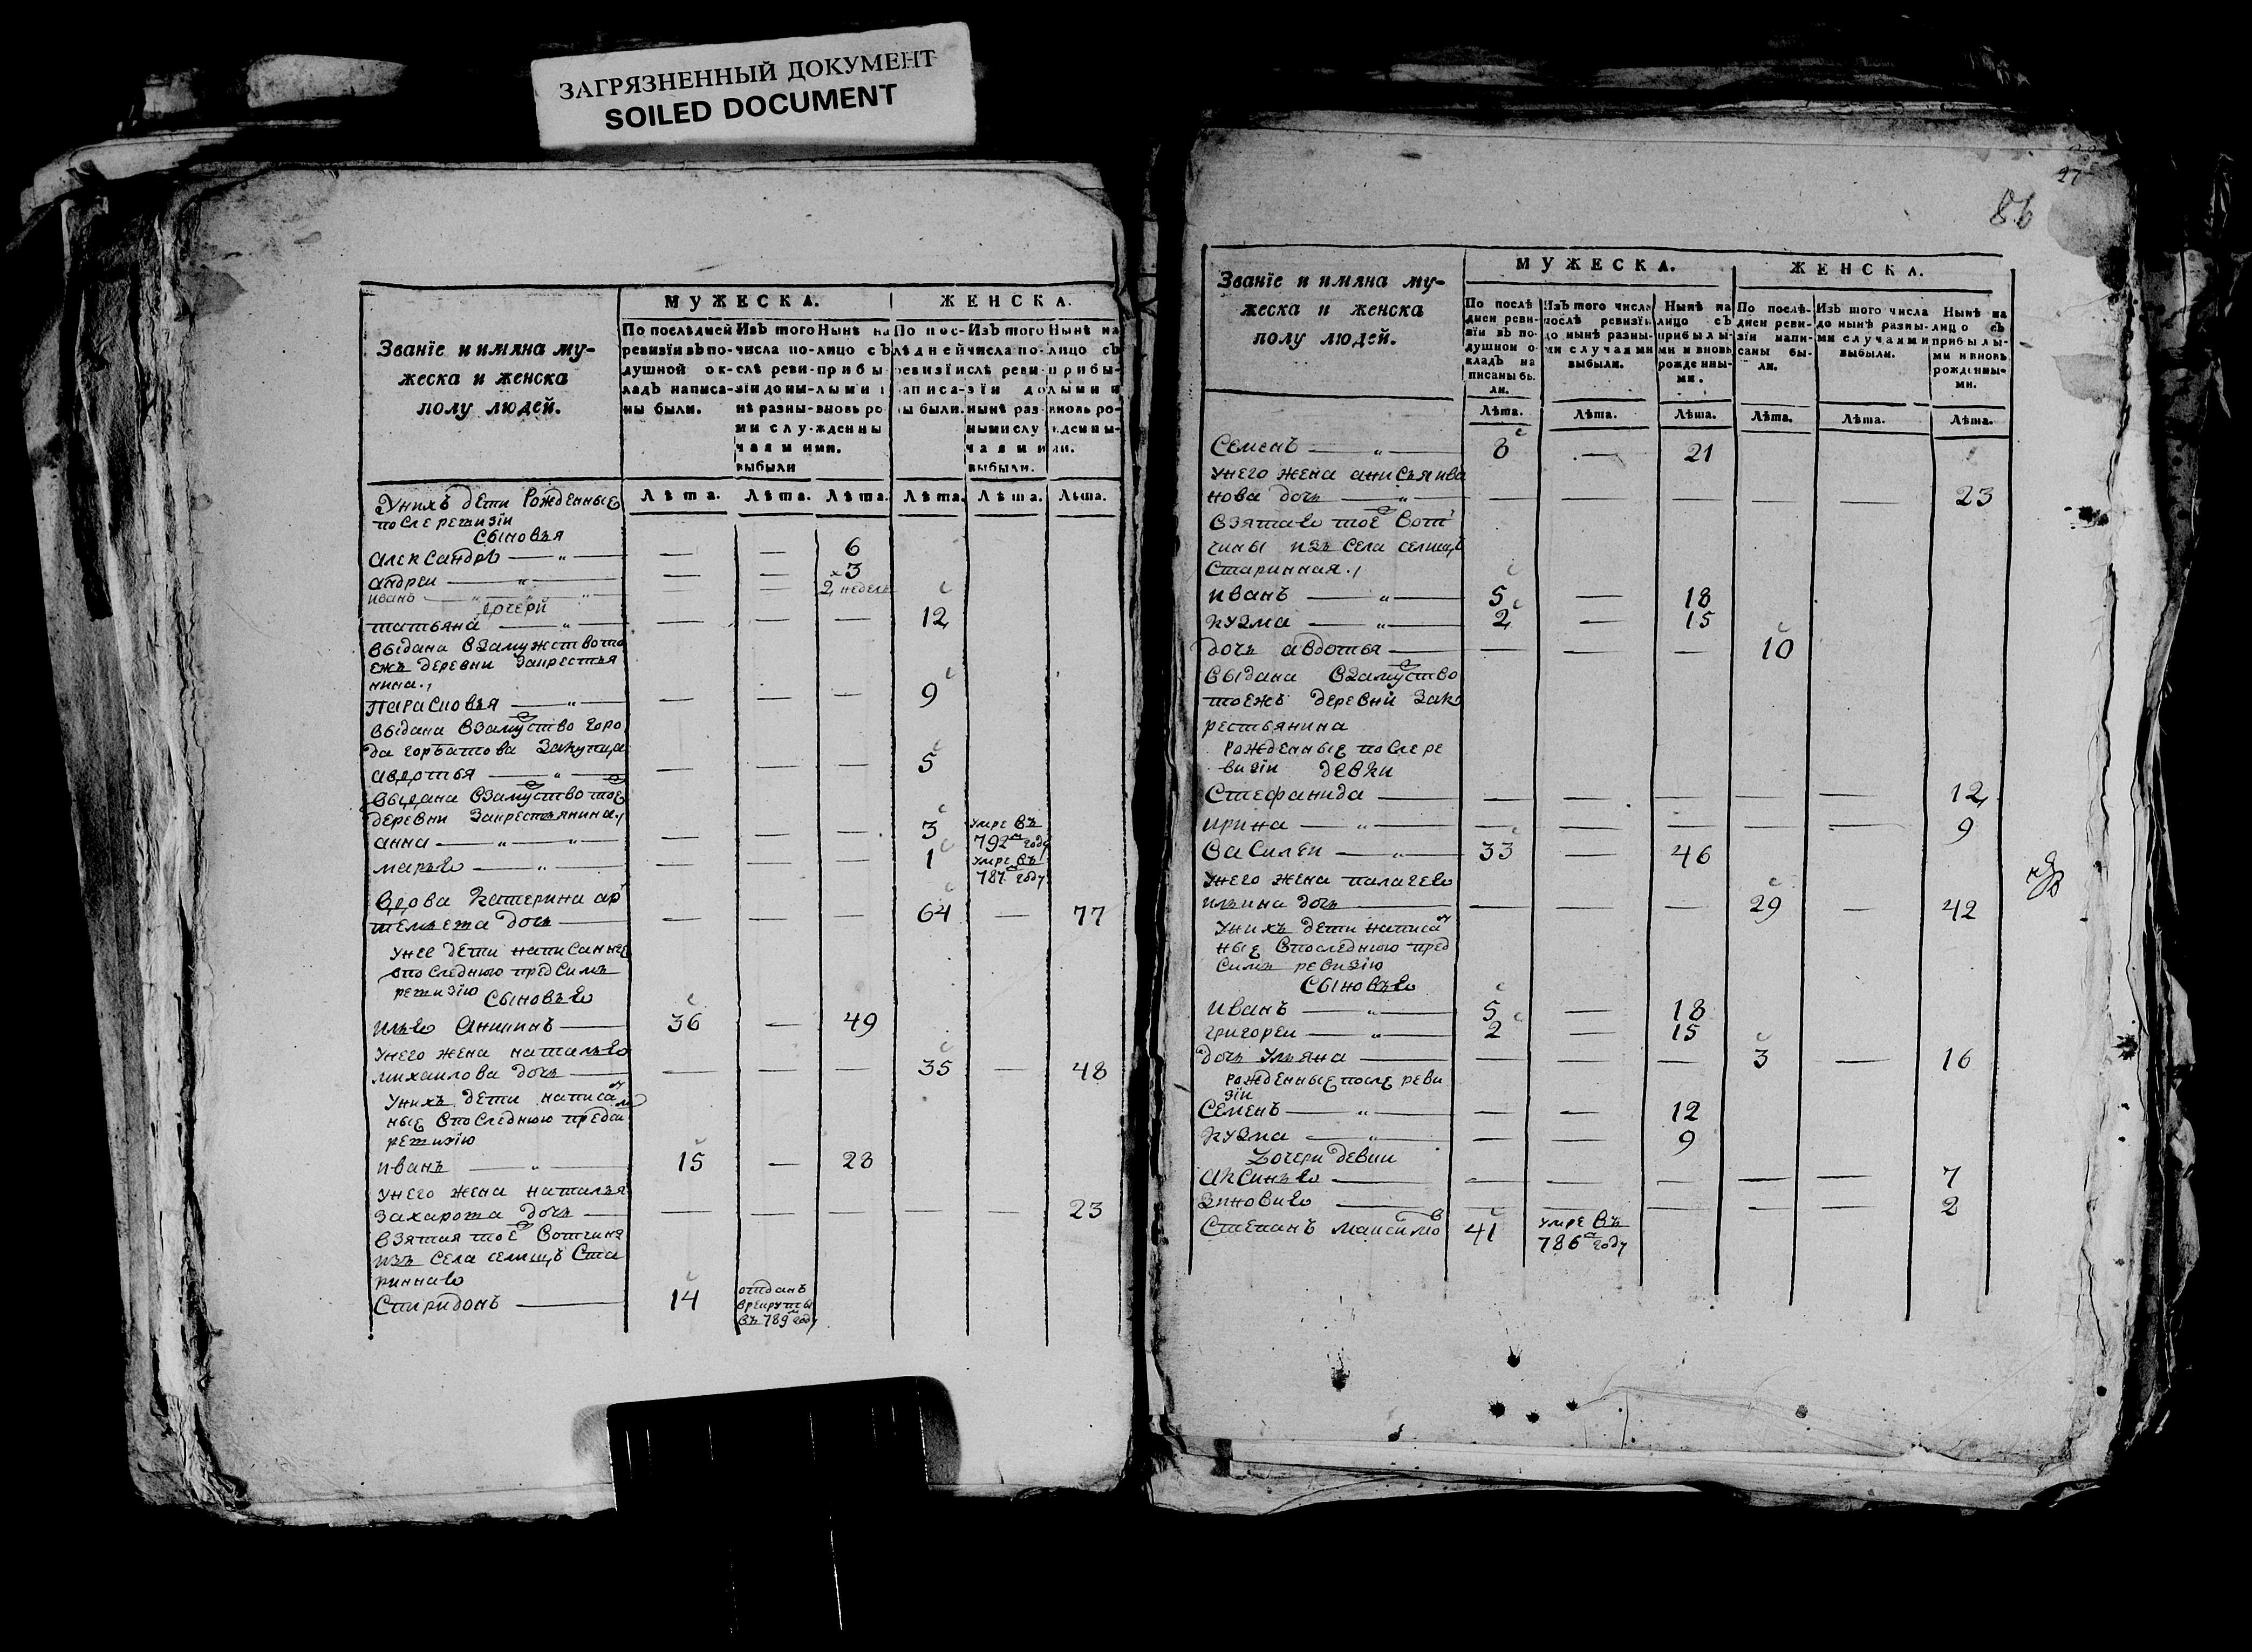 ЗАГРЯЗНЕННЫЙ ДОКУМЕНТ
SOILED DOCUMENT
Званїе и имяна му-
жеска и женска
полу людей.
МУЖЕСКА.
ЖЕНСКА.
По послѣдней ревизїи въ по-душной ок-ладъ написа-ны были.
Изъ того числа по-слѣ реви-зїи до ны-нѣ разны-ми слу-чаями выбыли
Нынѣ на лицо съ прибы-лыми и вновь ро-жденны ми.
Нынѣ на лицо съ прибы-лыми и вновь ро-жденны-ми.
Лѣта. Лѣта. Лѣта. Лѣта. Лѣта. Лѣта.
Унихъ дети Рожденные
после ревизїи
сыновья
александръ — „ — — — 6
андреи — „ — — — 3
иванъ — „ — — — 2 недель
дочери
татьяна — „ — — — — 12
выдана взамужство то
ежъ деревни закрестья
нина.,
Парасковья — „ — — — — 9
выдана взамуство горо
да горбатова закупца
авдотья — „ — — — — 5
выдана взамуство тоеж
деревни закрестьянина.,
анна — „ — — — — 3 умре въ 792м году
марья — „ — — — — 1 умре въ 787м году
вдова катерина ар
темьева дочь — — — — 64 — 77
унее дети написанные
впоследнюю предсимъ
ревизїю сыновья
илья Аникинъ — 36 — 49
унего жена наталья
михаилова дочь — — — — 35 — 48
унихъ дети написан
ные впоследнюю предсим
ревизїю
иванъ — „ — 15 — 28
унего жена наталья
захарова дочь — — — — — — 23
взятая тоеж вотчины
изъ села селищъ Ста
ринная
Спиридонъ — 14 отданъ врекруты въ 789м году
27
86
Званїе и имяна му-
жеска и женска
полу людей.
МУЖЕСКА.
ЖЕНСКА.
По послѣ дней реви-зїи въ по-душной о-кладъ на писаны бы-ли.
Изъ того числа послѣ ревизїи до нынѣ разны-ми случаями выбыли.
Нынѣ на лицо съ прибылы-ми и вновь рожденны-ми.
По послѣ-дней реви-зїи напи-саны бы-ли.
Изъ того числа до нынѣ разны-ми случаями выбыли.
Нынѣ на лицо съ прибылы-ми и вновь рожденны-ми.
Лѣта. Лѣта. Лѣта. Лѣта. Лѣта. Лѣта.
Семенъ — „ — 8 — 21
унего жена анисья ива
нова дочь — „ — — — — — — 23
взятая тоеж вот
чины изъ села селищъ
Старинная.,
иванъ — „ — 5 — 18
кузма — „ — 2 — 15
дочь авдотья — — — — 10
выдана взамуство
тоежъ деревни зак
рестьянина
рожденные после ре
визїи девки
Стефанида — — — — — — 12
ирина — „ — — — — — — 9
Василеи — „ — 33 — 46
унего жена палагея
ильина дочь — — — — 29 — 42
унихъ дети написан
ные впоследнюю пред
симъ ревизїю
Сыновья
иванъ — „ — 5 — 18
григореи — „ — 2 — 15
дочь ульяна — — — — 3 — 16
рожденные после реви
зїи
Семенъ — „ — — — 12
кузма — „ — — — 9
Дочери девки
Аксинья — — — — — — 7
Зиновия — — — — — — 2
Степанъ максимов 41 умре въ 786м году